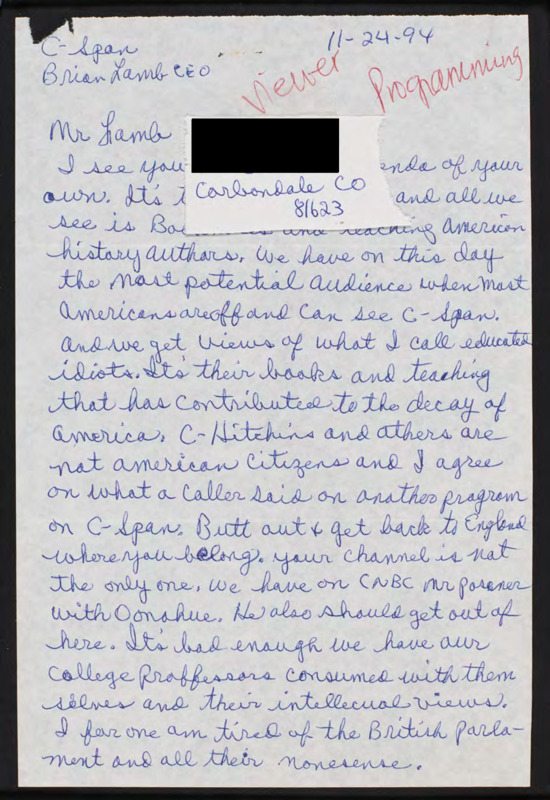 C-Span
11-24-94
Brian Lamb CEO
Viewer
Programming
Mr Lamb
I see you enda of your
own. It's and all we
see is and teaching American
history authors. We have on this day
the most potential audience when most
Americans are off and can see C-Span.
and we get views of what I call educated
idiots. It's their books and teaching
that has contributed to the decay of
America. C-Hitchins and others are
not american Citizens and I agree
on what a caller said on another program
on C-Span. Butt out & get back to England
where you belong. your channel is not
the only one. we have on CNBC mr posener
with Donahue. He also should get out of
here. It's bad enough we have our
College Proffessors consumed with them
selves and their intellecual views.
I for one am tired of the British Parla-
ment and all their nonesense.
Carbondale CO
81623